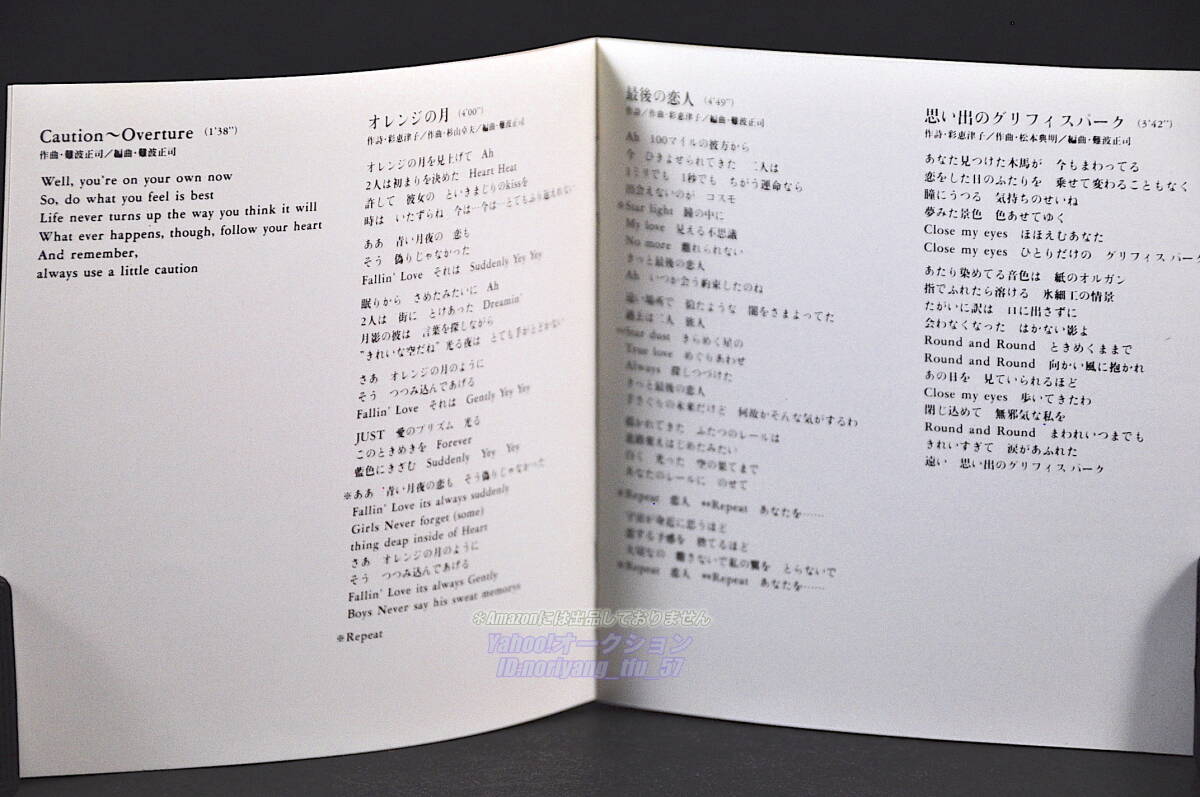 Caution〜Overture (1'38")
作曲・難波正司／編曲・難波正司
Well, you're on your own now
So, do what you feel is best
Life never turns up the way you think it will
What ever happens, though, follow your heart
And remember,
always use a little caution
オレンジの月 (4'00")
作詩・彩恵津子／作曲・杉山卓夫／編曲・難波正司
オレンジの月を見上げて Ah
2人は初まりを決めた Heart Heat
許して 彼女の といきまじりのkissを
時は いたずらね 今は一今は一とてもふり返れない
ああ 青い月夜の 恋も
そう 偽りじゃなかった
Fallin' Love それは Suddenly Yey Yey
眠りから さめたみたいに Ah
2人は 街に とけあった Dreamin'
月影の彼は 言葉を探しながら
"きれいな空だね" 光る夜は とても手がとどかない
さあ オレンジの月のように
そう つつみ込んであげる
Fallin' Love それは Gently Yey Yey
JUST 愛のプリズム 光る
このときめきを Forever
藍色にきざむ Suddenly Yey Yey
※ああ 青い月夜の恋も そう偽りじゃなかった
Fallin' Love its always suddenly
Girls Never forget (some)
thing deap inside of Heart
さあ オレンジの月のように
そう つつみ込んであげる
Fallin' Love its always Gently
Boys Never say his sweat memorys
※Repeat
最後の恋人 (4'49")
作詩／作曲・彩恵津子／編曲・難波正司
Ah 100マイルの彼方から
今 ひきよせられてきた 二人は
1ミリでも 1秒でも ちがう運命なら
出会えないのが コスモ
※Star light 瞳の中に
My love 見える不思議
No more 離れられない
きっと最後の恋人
Ah いつか会う約束したのね
遠い場所で 似たような 闇をさまよってた
過去は二人 旅人
**Star dust きらめく星の
True love めぐりあわせ
Always 探しつづけた
きっと最後の恋人
手さぐりの未来だけど 何故かそんな気がするわ
描かれてきた ふたつのレールは
進路変えはじめたみたい
白く 光った 空の果てまで
あなたのレールに のせて
※Repeat 恋人 **Repeat あなたを……
宇宙が身近に思うほど
恋する予感を 捨てるほど
大切なの 離さないで私の翼を とらないで
※Repeat 恋人 **Repeat あなたを……
思い出のグリフィスパーク (3'42")
作詩・彩恵津子／作曲・松本典明／編曲・難波正司
あなた見つけた木馬が 今もまわってる
恋をした日のふたりを 乗せて変わることもなく
瞳にうつる 気持ちのせいね
夢みた景色 色あせてゆく
Close my eyes ほほえむあなた
Close my eyes ひとりだけの グリフィスパーク
あたり染めてる音色は 紙のオルガン
指でふれたら溶ける 氷細工の情景
たがいに訳は 口に出さずに
会わなくなった はかない影よ
Round and Round ときめくままで
Round and Round 向かい風に抱かれ
あの日を 見ていられるほど
Close my eyes 歩いてきたわ
閉じ込めて 無邪気な私を
Round and Round まわれいつまでも
きれいすぎて 涙があふれた
遠い 思い出のグリフィスパーク
※Amazonには出品しておりません
Yahoo!オークション
ID:noriyang_tfu_57